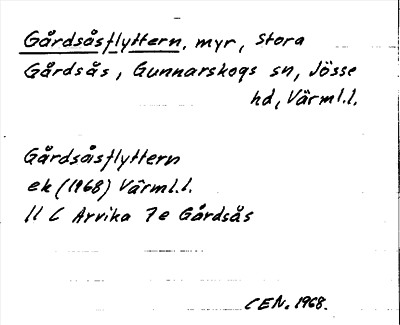 Gårdsåsflyttern, myr, Stora
Gårdsås, Gunnarskogs sn, Jösse
hd, Värml.l.
Gårdsåsflyttern
ek (1968) Värml.l.
11 C Arvika 7e Gårdsås
CEN. 1968.